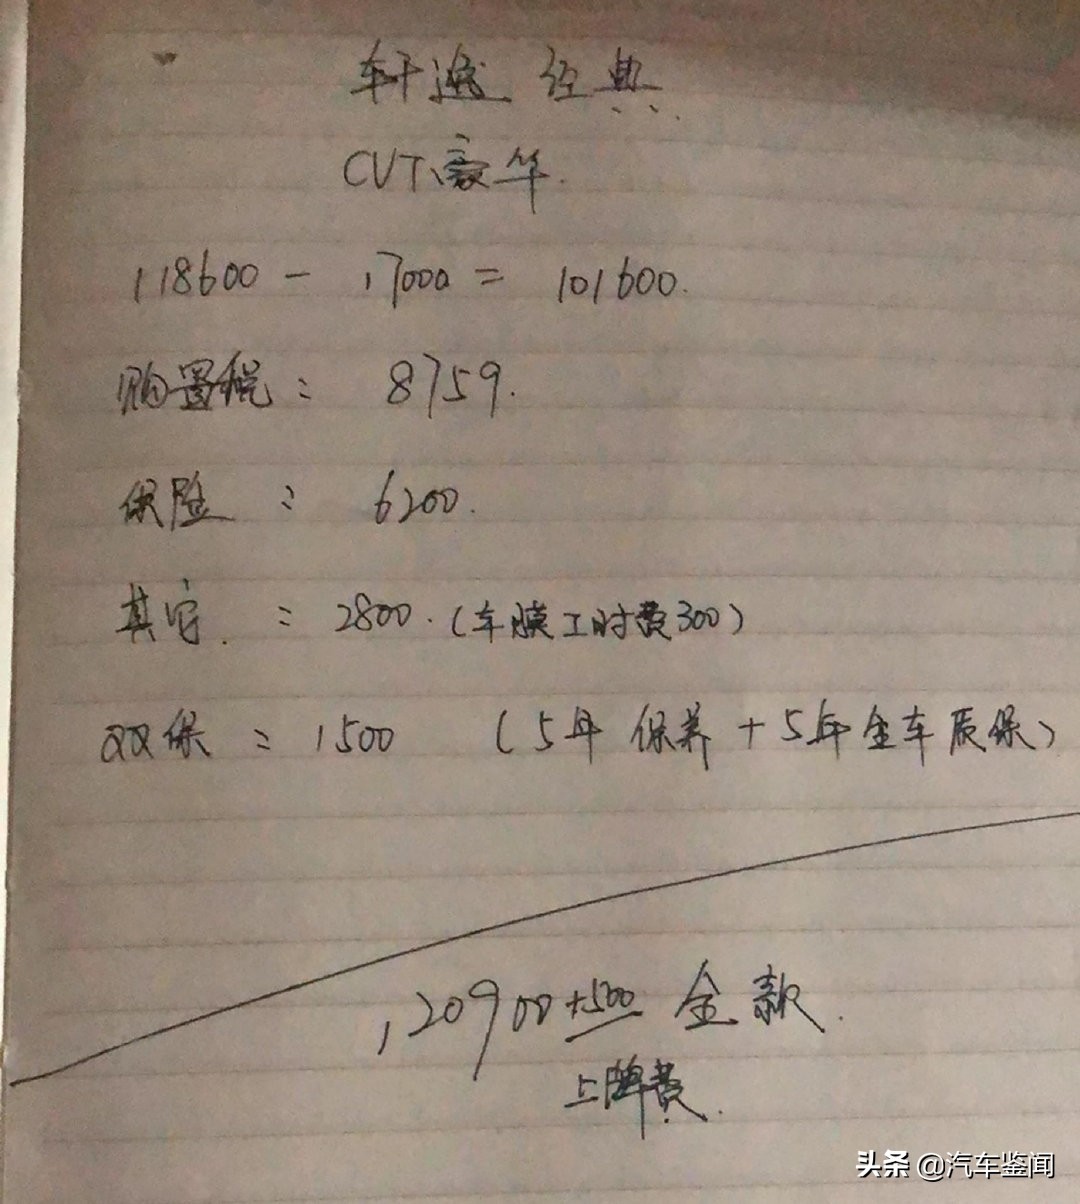 轩逸 经典
CVT豪华.
118600 - 17000 = 101600.
购置税: 8759.
保险: 6200.
其它: 2800.(车膜工时费300)
双保: 1500 (5年保养+5年全车质保)
120900+500 全款.
上牌费.
头条 @汽车鉴闻